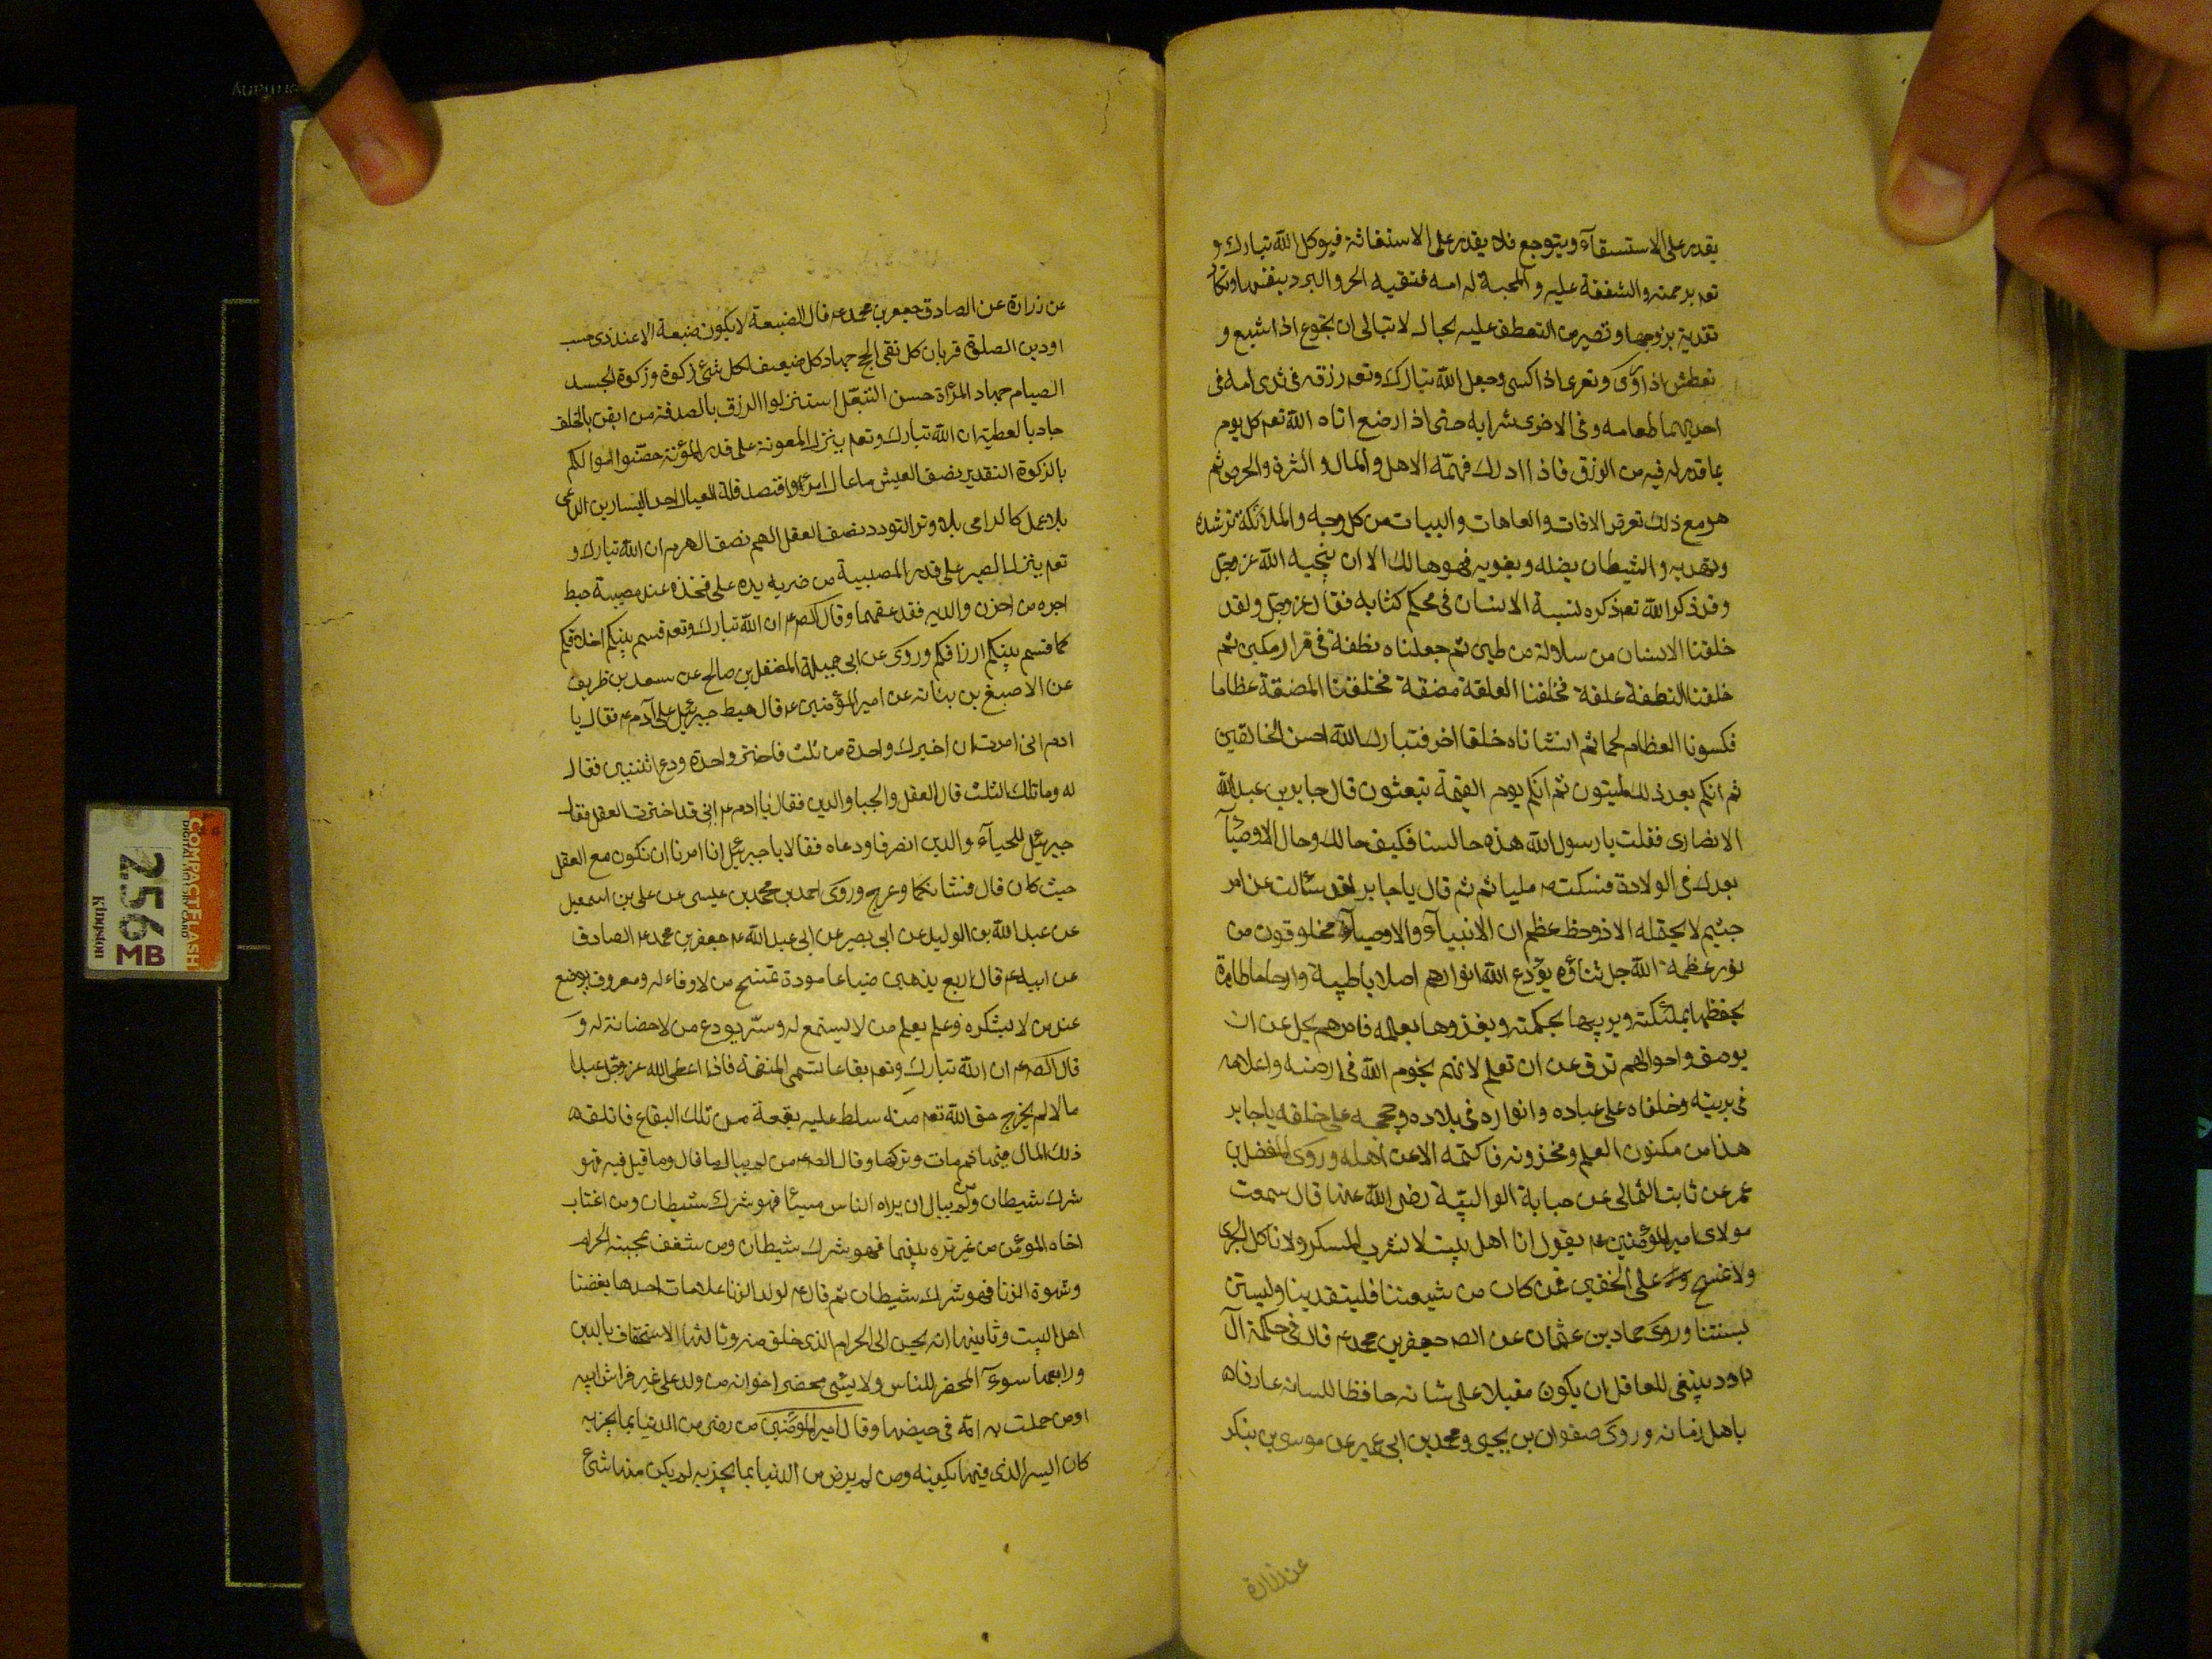 يقدر على الاستسقاء ويتوجع فلا يقدر على الاستغاثة فيوكل الله تبارك و
تعم برحمته والشفقة عليه والمحبة له امه فتقيه الحر والبرد بنفسها وتكاد
تفديه بروحها وتصير من التعطف عليه بحال لا تبالى ان تجوع اذا شبع و
تعطش اذا روى وتعرى اذا كسى وجعل الله تبارك وتعم رزقه فى ثدى امه فى
احديهما طعامه وفى الاخرى شرابه حتى اذا رضع اتاه الله تعم كل يوم
بما قدر له فيه من الرزق فاذا ادرك فهمّه الاهل والمال والشره والحرص ثم
هو مع ذلك تعرض الافات والعاهات والبليات من كل وجه والملائكة ترشده
وتهديه والشيطان يضله ويغويه فهو هالك الا ان ينجيه الله عز وجل
وقد ذكر الله تعم ذكره نسبة الانسان فى محكم كتابه فقال عز وجل ولقد
خلقنا الانسان من سلالة من طين ثم جعلناه نطفة فى قرار مكين ثم
خلقنا النطفة علقة فخلقنا العلقة مضغة فخلقنا المضغة عظاما
فكسونا العظام لحما ثم انشاناه خلقا اخر فتبارك الله احسن الخالقين
ثم انكم بعد ذلك لميتون ثم انكم يوم القيمة تبعثون قال جابر بن عبد الله
الانصارى فقلت يا رسول الله هذه حالنا فكيف حالك وحال الاوصياء
بعدك فى الولادة فسكت ص مليا ثم قال يا جابر لقد سالت عن امر
جسيم لا يحتمله الا ذو حظ عظيم ان الانبياء والاوصياء مخلوقون من
نور عظمة الله جل ثناؤه يؤدع الله انوارهم اصلابا طيبة وارحاما طاهرة
يحفظها بملئكته ويربيها بحكمته ويغذوها بعلمه فامرهم يجل عن ان
يوصف واحوالهم تدق عن ان تعلم لانهم نجوم الله فى ارضه واعلامه
فى بريته وخلفاه على عباده وانواره فى بلاده وحججه على خلقه يا جابر
هذا من مكنون العلم ومخزونه فاكتمه الا عن اهله وروى المفضل بن
عمر عن ثابت الثمالى عن حبابة الوالبيّة رضى الله عنها قال سمعت
مولاى امير المؤمنين ع يقول انا اهل بيت لا نشرب المسكر ولا ناكل الجرى
ولا نمسح على الخفين فمن كان من شيعتنا فليقتد بنا وليستن
بسنتنا وروى حماد بن عثمان عن الصم جعفر بن محمد ع قال فى حكمة آل
داود ينبغى للعاقل ان يكون مقبلا على شانه حافظا للسانه عارفا
باهل زمانه وروى صفوان بن يحيى ومحمد بن ابى عمير عن موسى بن بكر
عن زرارة
عن زرارة عن الصادق جعفر بن محمد ع قال الصنيعة لا يكون صنيعة الا عند ذى حسب
او دين الصلوة قربان كل تقى الحج جهاد كل ضعيف لكل شئ زكوة وزكوة الجسد
الصيام جهاد المرأة حسن التبعّل استنزلوا الرزق بالصدقة من ايقن بالخلف
جاد بالعطية ان الله تبارك وتعم ينزل المعونة على قدر المؤنة حصّنوا اموالكم
بالزكوة التقدير نصف العيش ما عال امرؤ اقتصد قلة العيال احد اليسارين الداعى
بلا عمل كالرامى بلا وتر التودد نصف العقل الهم نصف الهرم ان الله تبارك و
تعم ينزل الصبر على قدر المصيبة من ضرب يده على فخذه عند مصيبة حبط
اجره من احزن والديه فقد عقهما وقال الصم ع ان الله تبارك وتعم قسم بينكم اخلاقكم
كما قسم بينكم ارزاقكم وروى عن ابى جميلة المفضل بن صالح عن سعد بن ظريف
عن الاصبغ بن نباته عن امير المؤمنين ع قال هبط جبرئيل على آدم ع فقال يا
ادم انى امرت ان اخيرك واحدة من ثلث فاختر واحدة ودع اثنتين فقال
له وما تلك الثلث قال العقل والحيا والدين فقال يا ادم ع انى قد اخترت العقل فقال
جبرئيل للحياء والدين انصرفا ودعاه فقالا يا جبرئيل انا امرنا ان نكون مع العقل
حيث كان قال فشانكما وعرج وروى احمد بن محمد بن عيسى عن على بن اسمعيل
عن عبد الله بن الوليد عن ابى بصير عن ابى عبد الله ع جعفر بن محمد ع الصادق
عن ابيه ع قال اربع يذهبن ضياعا مودة تمنح من لا وفاء له ومعروف يوضع
عند من لا يشكره وعلم يعلم من لا يستمع له وسرّ يودع من لا حضانة له و
قال الصم ع ان الله تبارك وتعم بقاعا تسمى المنتقمة فاذا اعطى الله عز وجل عبدا
مالا لم يخرج حق الله تعم منه سلط عليه بقعة من تلك البقاع فاتلف
ذلك المال فيها ثم مات وتركها وقال الصم ع من لم يبال ما قال وما قيل فيه فهو
شرك شيطان ومن لم يبال ان يراه الناس مسيئا فهو شرك شيطان ومن اغتاب
اخاه المؤمن من غير ترة بينهما فهو شرك شيطان ومن شغف بمحبة الحرام
وشهوة الزنا فهو شرك شيطان ثم قال ع لولد الزنا علامات احدها بغضنا
اهل البيت وثانيها انه يحن الى الحرام الذى خلق منه وثالثها الاستخفاف بالدين
ورابعها سوء المحضر للناس ولا يسئ محضر اخوانه من ولد على غير فراش ابيه
او من حملت به امه فى حيضها وقال امير المؤمنين من رضى من الدنيا بما يجزيه
كان ايسر الذى فيها يكفيه ومن لم يرض من الدنيا بما يجزيه لم يكن منها شئ
COMPACTFLASH
256
MB
Kingston